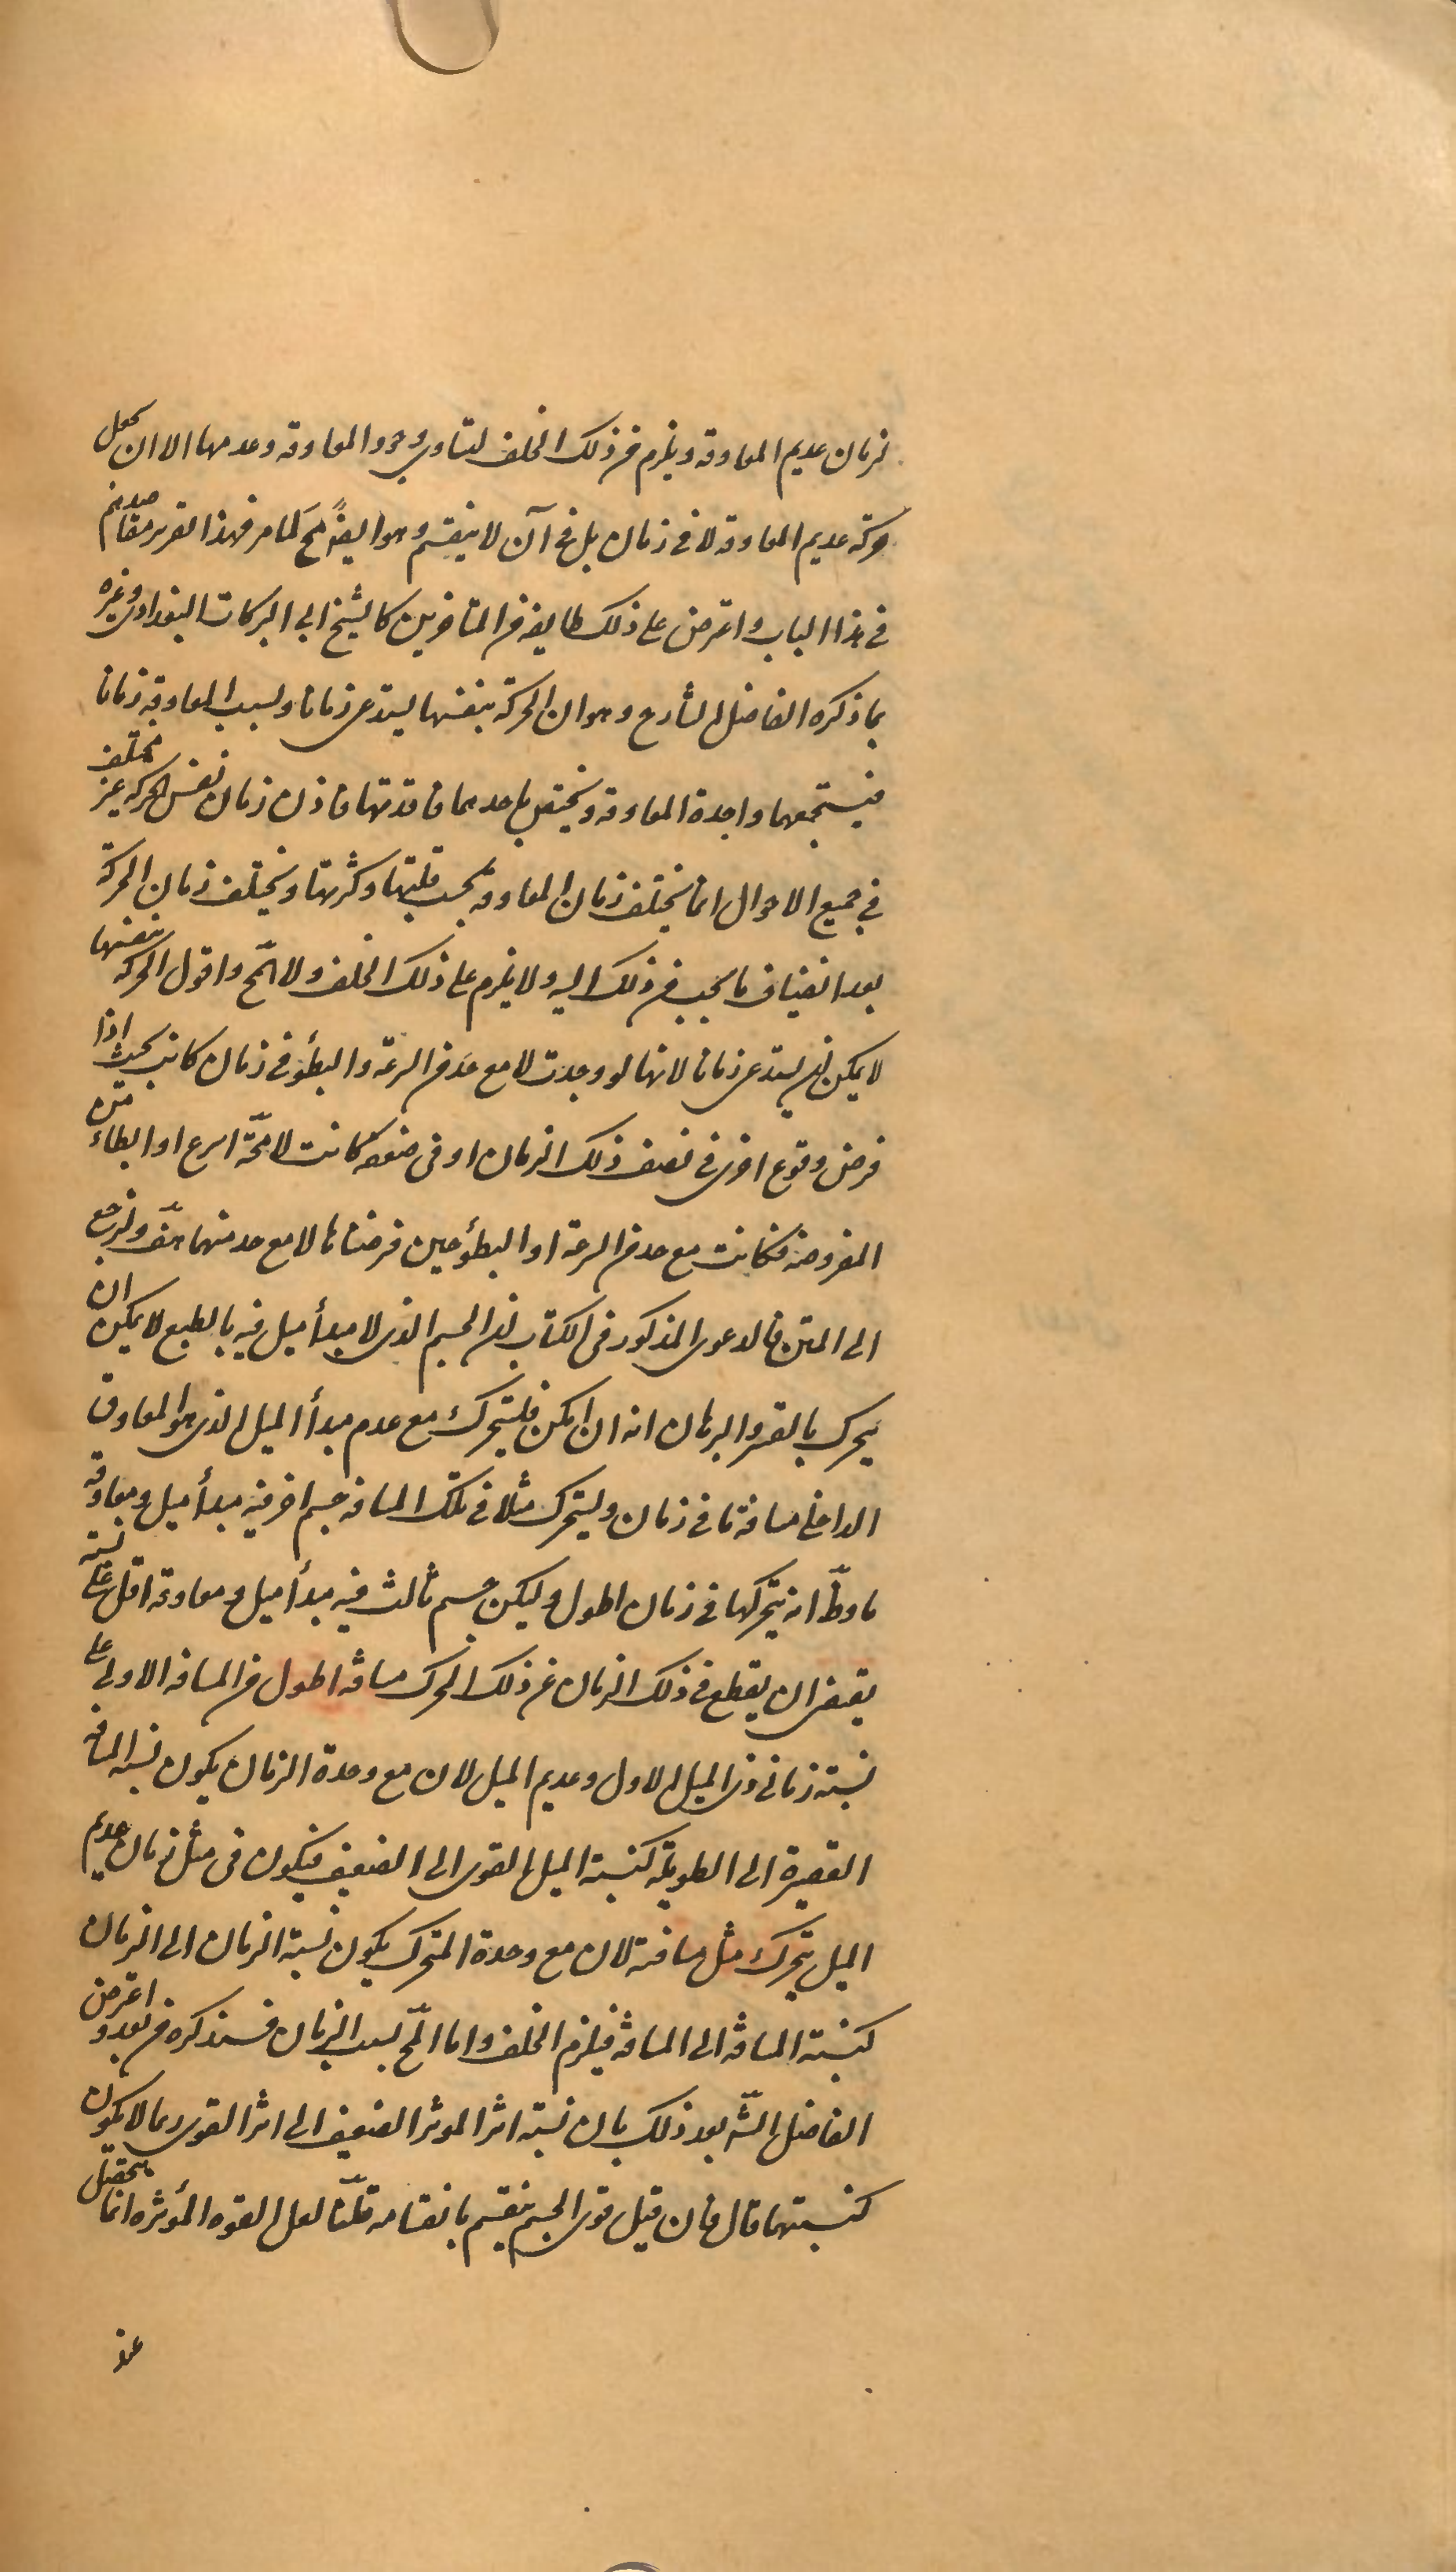 لزمان عديم المعاوقة ويلزم من ذلك الخلف لتساوى وجود المعاوقة وعدمها الا ان يجعل
حركة عديم المعاوقة لا فى زمان بل فى آن لا ينقسم وهو ايضً مح لما مر فهذا تقرير مقاصدهم
فى هذا الباب واعترض على ذلك طايفة من المتاخرين كالشيخ ابى البركات البغدادى وغيره
بما ذكره الفاضل الشارح وهو ان الحركة بنفسها يستدعى زمانا وبسبب المعاوقة زمانا
فيستجمعهما واجدة المعاوقة ويختص باحدهما فاقدتها فاذن زمان نفس الحركة غير مختلف
فى جميع الاحوال انما يختلف زمان المعاوقة بحسب قلتها وكثرتها ويختلف زمان الحركة
بعد انضياف ما يجب من ذلك اليه ولا يلزم على ذلك الخلف ولا المح واقول الحركة بنفسها
لا يمكن ان يستدعى زمانا لانها لو وجدت لا مع حد من السرعة والبطؤ فى زمان كانت بحيث اذا
فرض وقوع اخرى فى نصف ذلك الزمان او فى ضعفه كانت لا محّة اسرع او ابطاء من
المفروضة فكانت مع حد من السرعة او البطؤ حين فرضناها لا مع حد منهما هف ولنرجع
الى المتن فالدعوى المذكور فى الكتاب ان الجسم الذى لا مبدأ ميل فيه بالطبع لا يمكن ان
يتحرك بالقسر والبرهان انه ان امكن فليتحرك مع عدم مبدأ الميل الذى هو المعاوق
الداخلى مسافة ما فى زمان وليتحرك مثلا فى تلك المسافة جسم اخر فيه مبدأ ميل ومعاوقة
ما وظّ انه يتحركها فى زمان اطول وليكن جسم ثالث فيه مبدأ ميل ومعاوقة اقل على نسبة
يقتضى ان يقطع فى ذلك الزمان عن ذلك المحرك مسافة اطول من المسافة الاولى على
نسبة زمانى ذى الميل الاول وعديم الميل لان مع وحدة الزمان يكون نسبة المسافة
القصيرة الى الطويلة كنسبة الميل القوى الى الضعيف فيكون فى مثل زمان عديم
الميل يتحرك مثل مسافته لان مع وحدة المتحرك يكون نسبة الزمان الى الزمان
كنسبة المسافة الى المسافة فيلزم الخلف واما المح بسبب الزمان فسنذكره من بعد واعترض
الفاضل الشّ بعد ذلك بان نسبة اثر الموثر الضعيف الى اثر القوى ربما لا يكون
كنسبتهما قال فان قيل قوى الجسم ينقسم بانقسامه قلنا لعل القوة المؤثره انما يتحصل
عند